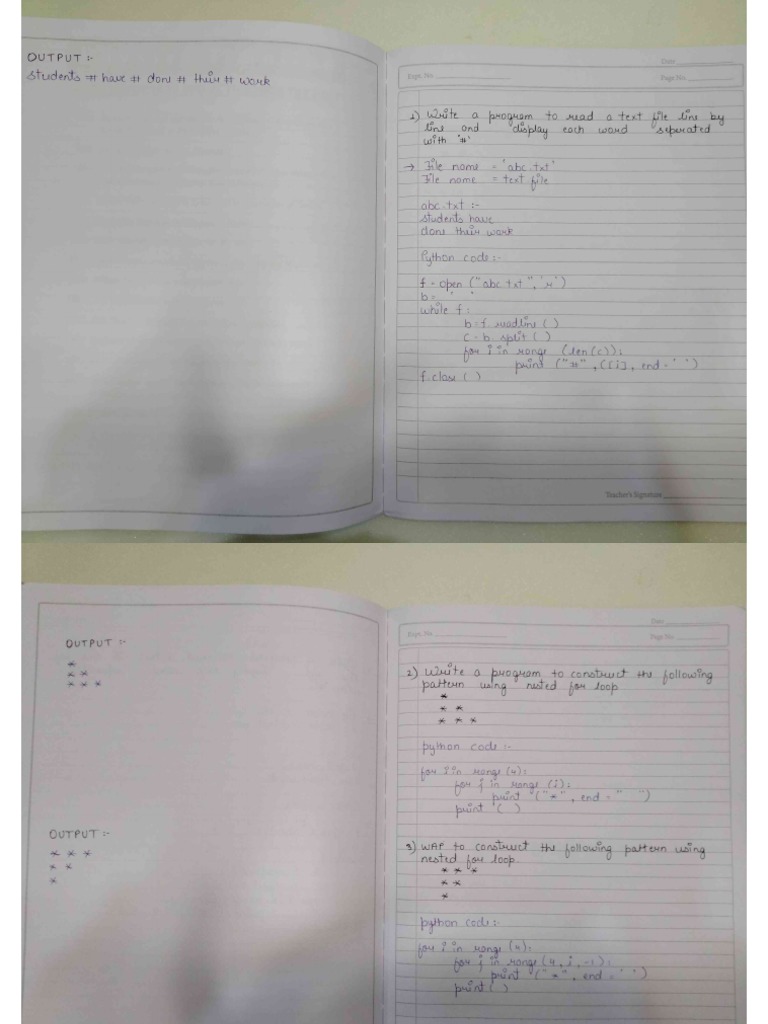 OUTPUT :-
students # have # done # their # work
Date
Expt. No.
Page No.
1) Write a program to read a text file line by
line and display each word seperated
with '#'
→ File name = 'abc.txt'
File name = text file
abc.txt :-
students have
done their work
Python code :-
f = open ("abc.txt", 'r')
b = ' '
while f :
b = f. readline ( )
c = b. split ( )
for i in range (len(c)):
print ("#", c[i], end = ' ')
f. close ( )
Teacher's Signature
OUTPUT :-
*
* *
* * *
OUTPUT :-
* * *
* *
*
Date
Expt. No.
Page No.
2) Write a program to construct the following
pattern using nested for loop
*
* *
* * *
python code :-
for i in range (4):
for j in range (i):
print ("*", end = " ")
print ( )
3) WAP to construct the following pattern using
nested for loop.
* * *
* *
*
python code :-
for i in range (4):
for j in range (4, i, -1):
print ("*", end = ' ')
print ( )